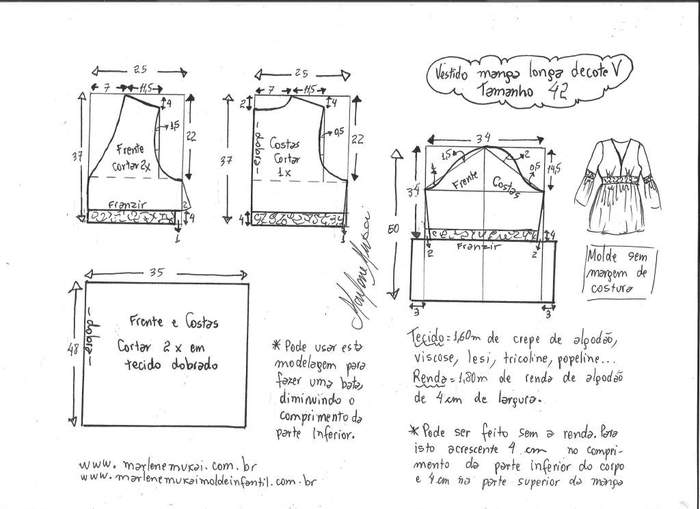 Vestido manga longa decote V
Tamanho 42
25
7
11,5
4
1,5
22
37
Frente
Cortar 2x
Franzir
2
4
1
25
7
11,5
2
4
dobra
Costas
Cortar
1x
0,5
22
37
4
1
34
1,5
2
1
0,5
14,5
Frente
Costas
35
50
Franzir
4
2
2
3
3
Molde sem
margem de
costura
Marlene Mukai
35
48
dobra
Frente e Costas
Cortar 2 x em
tecido dobrado
* Pode usar esta
modelagem para
fazer uma bata,
diminuindo o
comprimento da
parte inferior.
Tecido = 1,60m de crepe de algodão,
viscose, lesi, tricoline, popeline...
Renda = 1,80m de renda de algodão
de 4 cm de largura.
* Pode ser feito sem a renda. Para
isto acrescente 4 cm no compri-
mento da parte inferior do corpo
e 4 cm na parte superior da manga
www.marlenemukai.com.br
www.marlenemukaimoldeinfantil.com.br